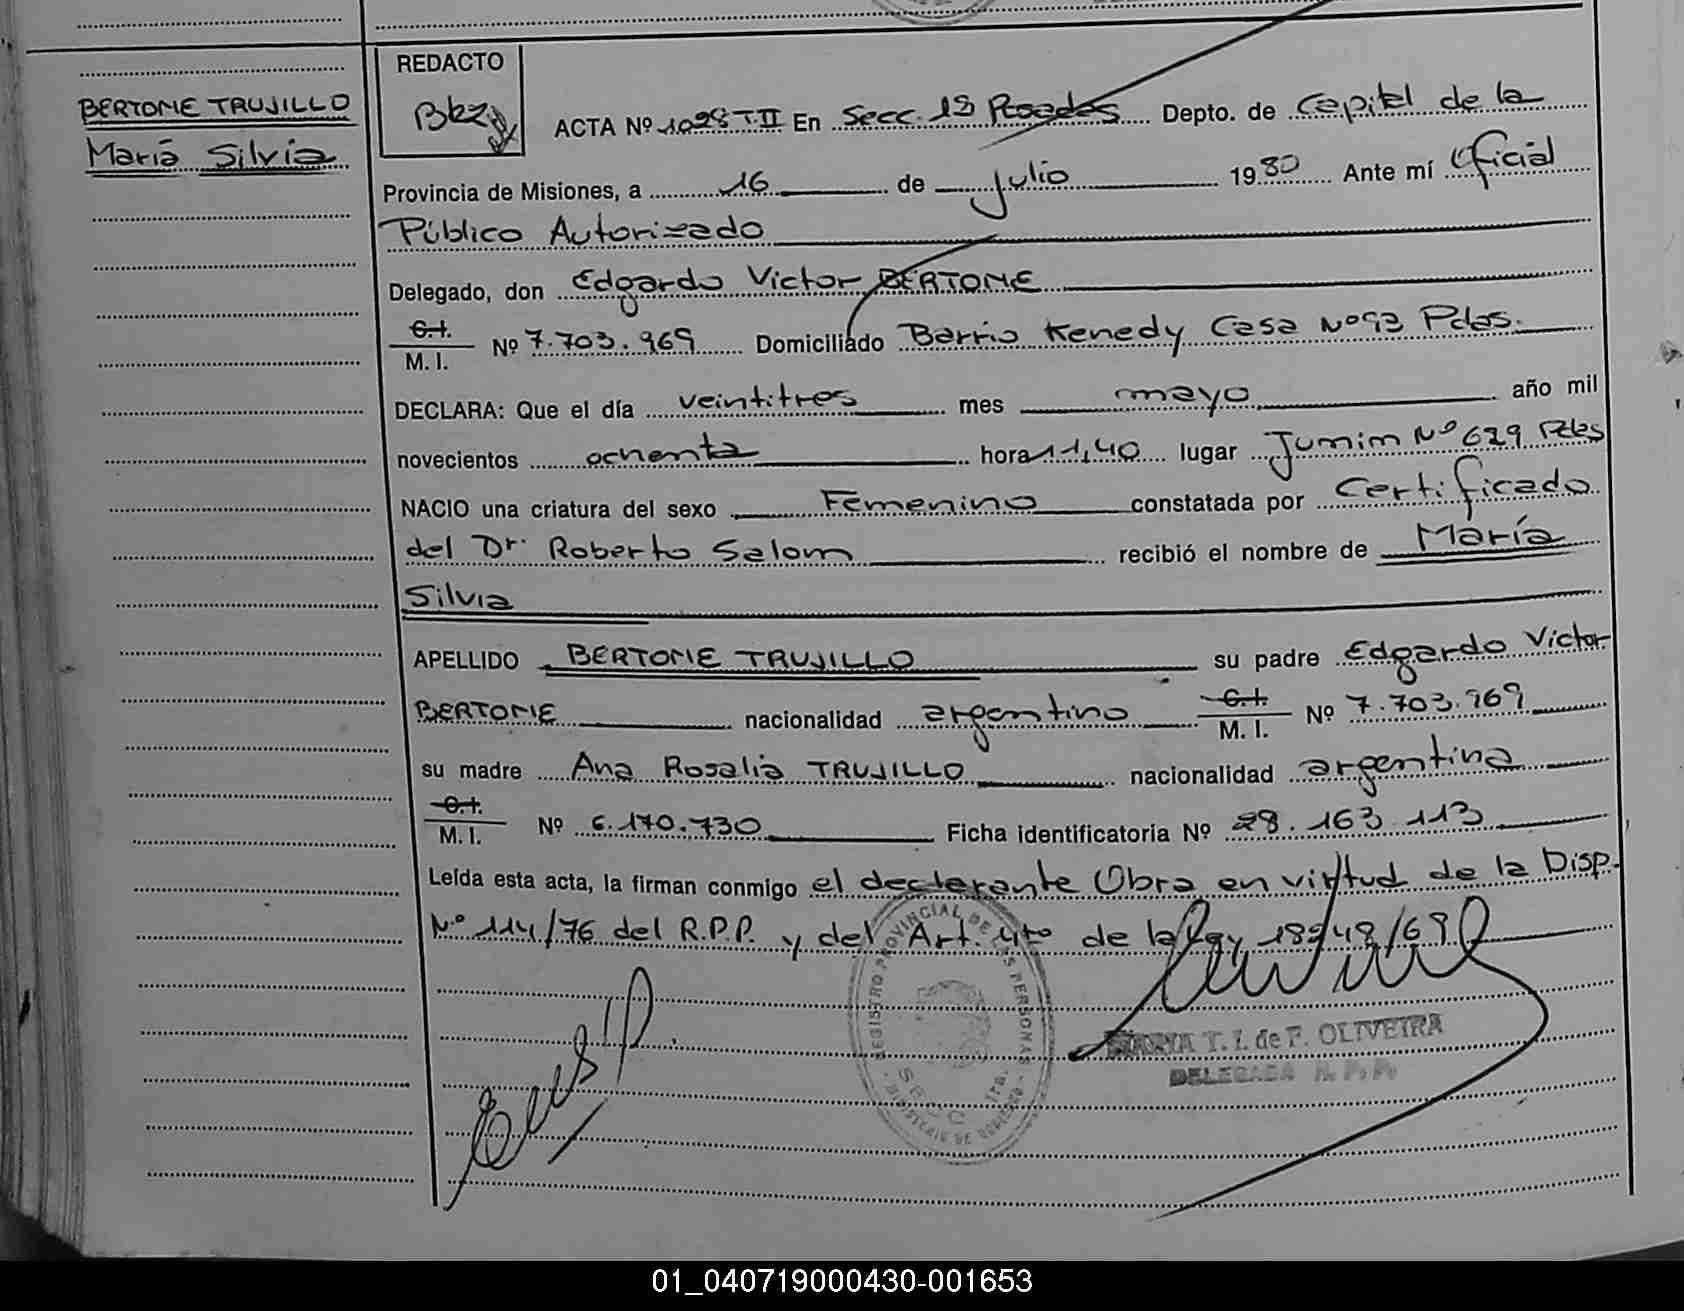 BERTONE TRUJILLO
María Silvia
REDACTO
ACTA Nº 1098 T II En Secc. 1ª Posadas Depto. de Capital de la
Provincia de Misiones, a 16 de julio 1980 Ante mí Oficial
Público Autorizado
Delegado, don Edgardo Victor BERTONE
C.I.
M. I. Nº 7.703.969 Domiciliado Barrio Kenedy Casa Nº 93 Pdas.
DECLARA: Que el día veintitres mes mayo año mil
novecientos ochenta hora 11,40 lugar Junin Nº 629 Pdas
NACIO una criatura del sexo Femenino constatada por Certificado
del Dr. Roberto Salom recibió el nombre de María
Silvia
APELLIDO BERTONE TRUJILLO su padre Edgardo Victor
BERTONE nacionalidad argentino C.I. M. I. Nº 7.703.969
su madre Ana Rosalia TRUJILLO nacionalidad argentina
C.I.
M. I. Nº 6.170.730 Ficha identificatoria Nº 28.163.113
Leída esta acta, la firman conmigo el declarante Obra en virtud de la Disp.
Nº 114/76 del R.P.P. y del Art. 4to de la Ley 18248/69
REGISTRO PROVINCIAL DE LAS PERSONAS
SECC. 1ra.
MINISTERIO DE GOBIERNO
MARIA T. I. de F. OLIVEIRA
DELEGADA R. P. P.
01_040719000430-001653